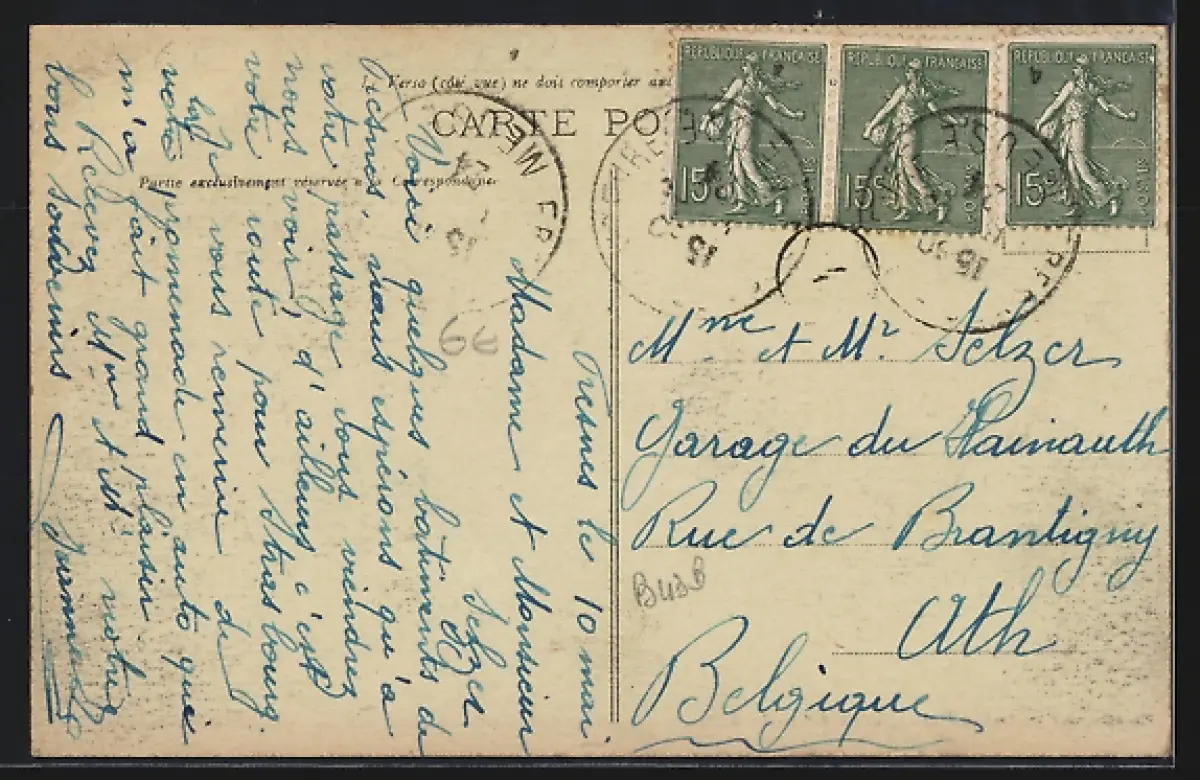 Verso (côté vue) ne doit comporter
CARTE PO
Partie exclusivement réservée à la Correspondance.
REPUBLIQUE FRANÇAISE
15c
POSTES
REPUBLIQUE FRANÇAISE
15c
POSTES
REPUBLIQUE FRANÇAISE
15c
POSTES
Mme et Mr Selzer
Garage du Hainauth
Rue de Brantigny
Ath
Belgique
le 10 mai
Madame et Monsieur
Selzer
Voici quelques bâtiments de
nous espérons qu'à
votre passage vous viendrez
nous voir, d'ailleurs c'est
votre route pour Strasbourg.
Je vous remercie de
votre promenade en auto qui
m'a fait grand plaisir
Recevez Mme et Mr notre
bons souvenirs